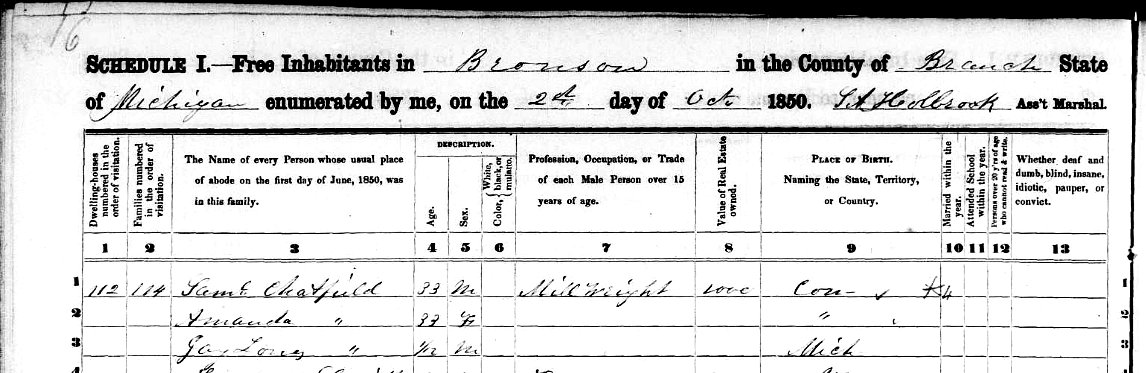 16
SCHEDULE I.—Free Inhabitants in Bronson in the County of Branch State
of Michigan enumerated by me, on the 2d day of Oct 1850. Holbrook Ass't Marshal.
DESCRIPTION.
Dwelling-houses numbered in the order of visitation. Families numbered in the order of visitation. The Name of every Person whose usual place of abode on the first day of June, 1850, was in this family. Age. Sex. Color, { White, black, or mulatto. Profession, Occupation, or Trade of each Male Person over 15 years of age. Value of Real Estate owned. PLACE OF BIRTH. Naming the State, Territory, or Country. Married within the year. Attended School within the year. Persons over 20 y'rs of age who cannot read & write. Whether deaf and dumb, blind, insane, idiotic, pauper, or convict.
1 2 3 4 5 6 7 8 9 10 11 12 13
1 112 114 Saml Chatfield 33 M Mill Wright 1000 Con 1
2 Amanda " 33 F " 2
3 " M Mich 3
4